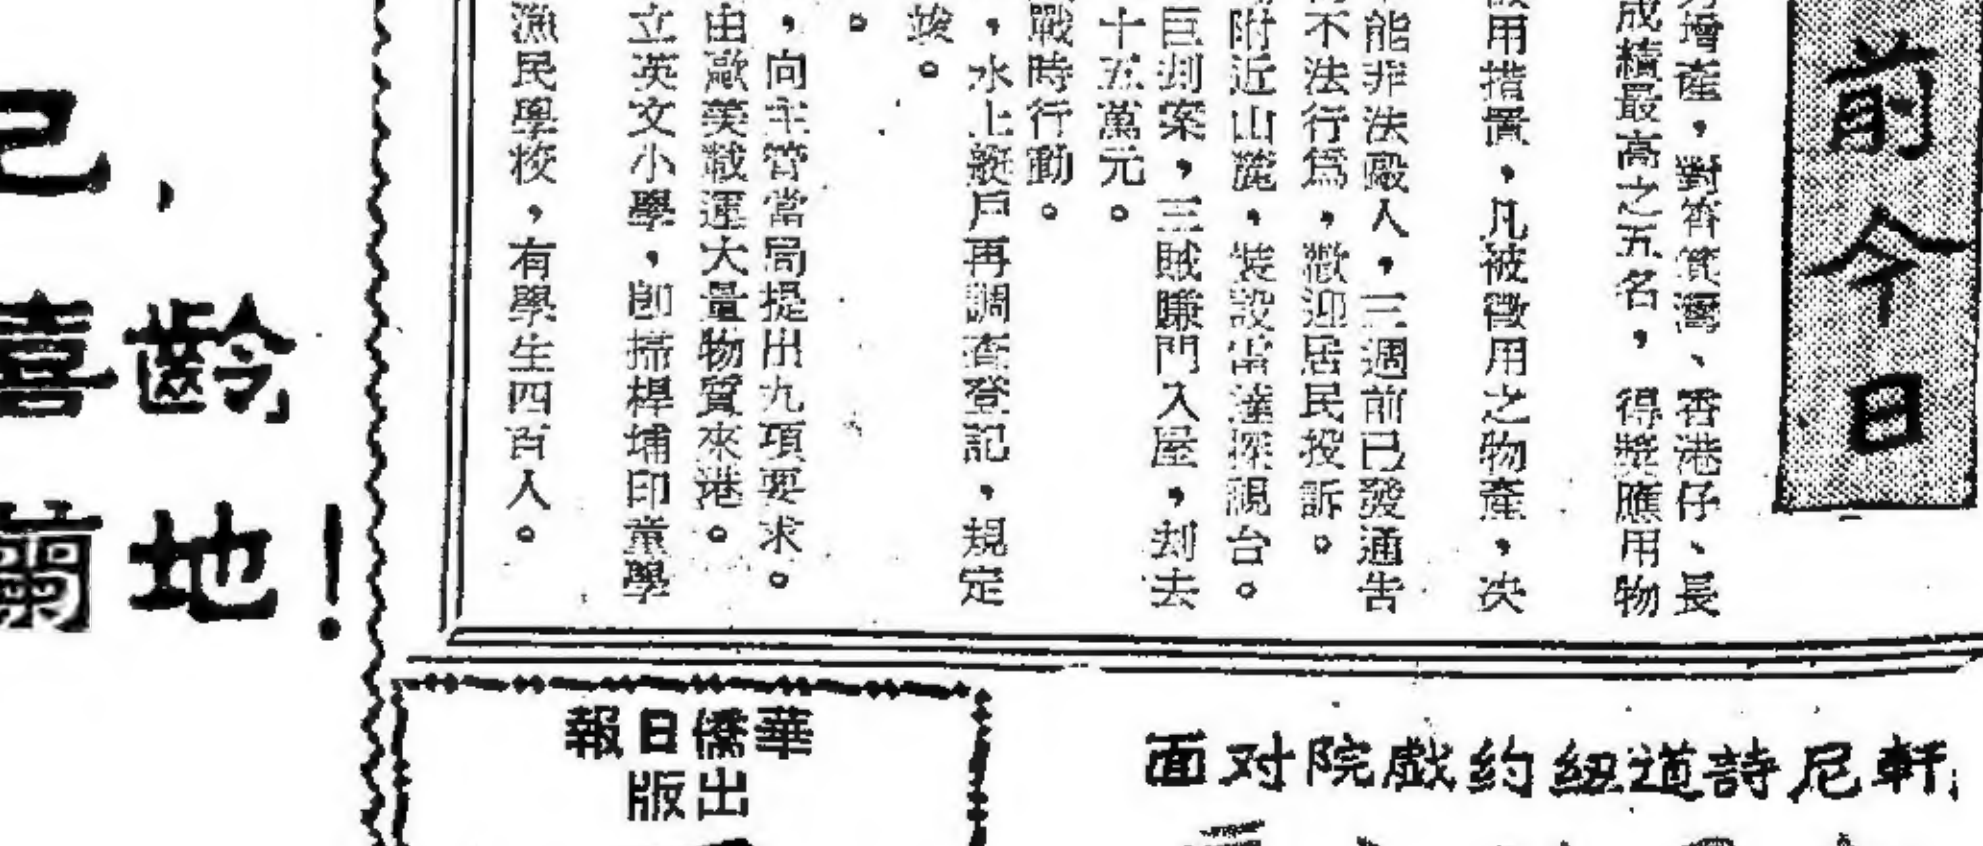 前今日
增產，對筲箕灣、香港仔、長
成績最高之五名，得獎應用物
用措置，凡被徵用之物產，决
能非法毆人，三週前已發通告
不法行爲，歡迎居民投訴。
附近山麓，裝設雷達探視台。
巨刦案，三賊賺門入屋，刦去
十五萬元。
戰時行動。
，水上艇戶再調查登記，規定
竣。
。
，向主管當局提出九項要求。
由歐美載運大量物質來港。
立英文小學，卽掃桿埔印童學
漁民學校，有學生四百人。
已，
齡
喜
地！
華僑日報
出版
軒尼詩道紐約戲院对面